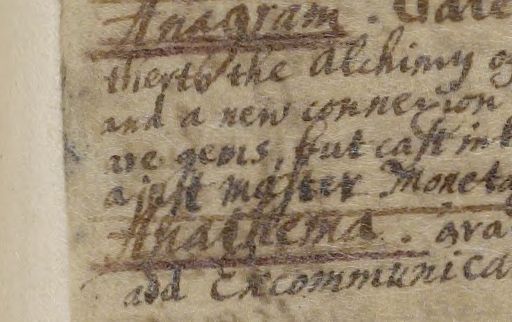 Anagram.
the Alchimy of
and a new connexion
are gems, but cast in
a just master Moneta
Anathema. gra
add Excommunica